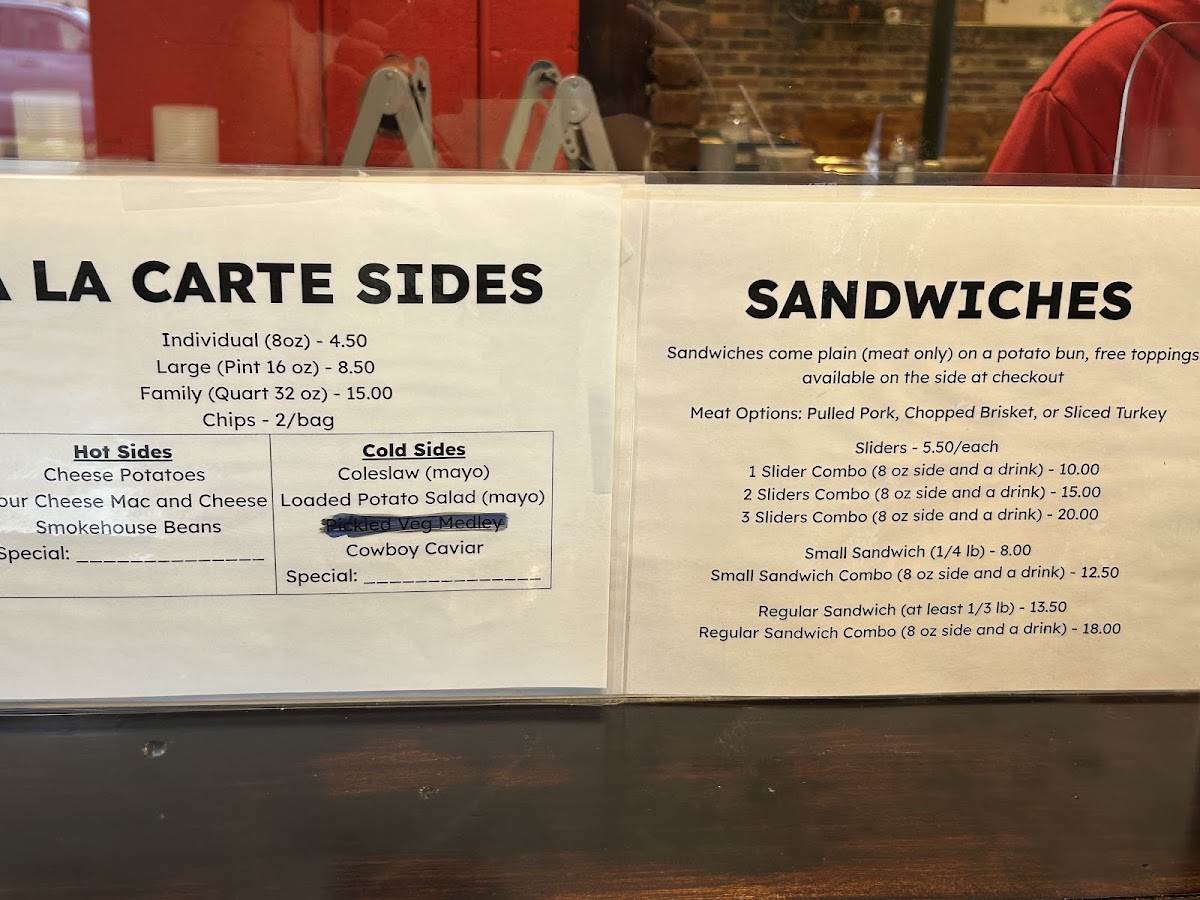 LA CARTE SIDES
Individual (8oz) - 4.50
Large (Pint 16 oz) - 8.50
Family (Quart 32 oz) - 15.00
Chips - 2/bag
Hot Sides
Cheese Potatoes
our Cheese Mac and Cheese
Smokehouse Beans
Special: _______________
Cold Sides
Coleslaw (mayo)
Loaded Potato Salad (mayo)
Pickled Veg Medley
Cowboy Caviar
Special: _______________
SANDWICHES
Sandwiches come plain (meat only) on a potato bun, free toppings
available on the side at checkout
Meat Options: Pulled Pork, Chopped Brisket, or Sliced Turkey
Sliders - 5.50/each
1 Slider Combo (8 oz side and a drink) - 10.00
2 Sliders Combo (8 oz side and a drink) - 15.00
3 Sliders Combo (8 oz side and a drink) - 20.00
Small Sandwich (1/4 lb) - 8.00
Small Sandwich Combo (8 oz side and a drink) - 12.50
Regular Sandwich (at least 1/3 lb) - 13.50
Regular Sandwich Combo (8 oz side and a drink) - 18.00